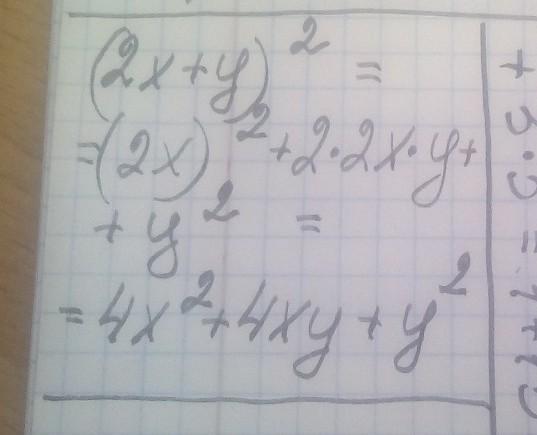 (2x+y)² =
=(2x)²+2·2x·y+
+ y² =
= 4x²+4xy+y²